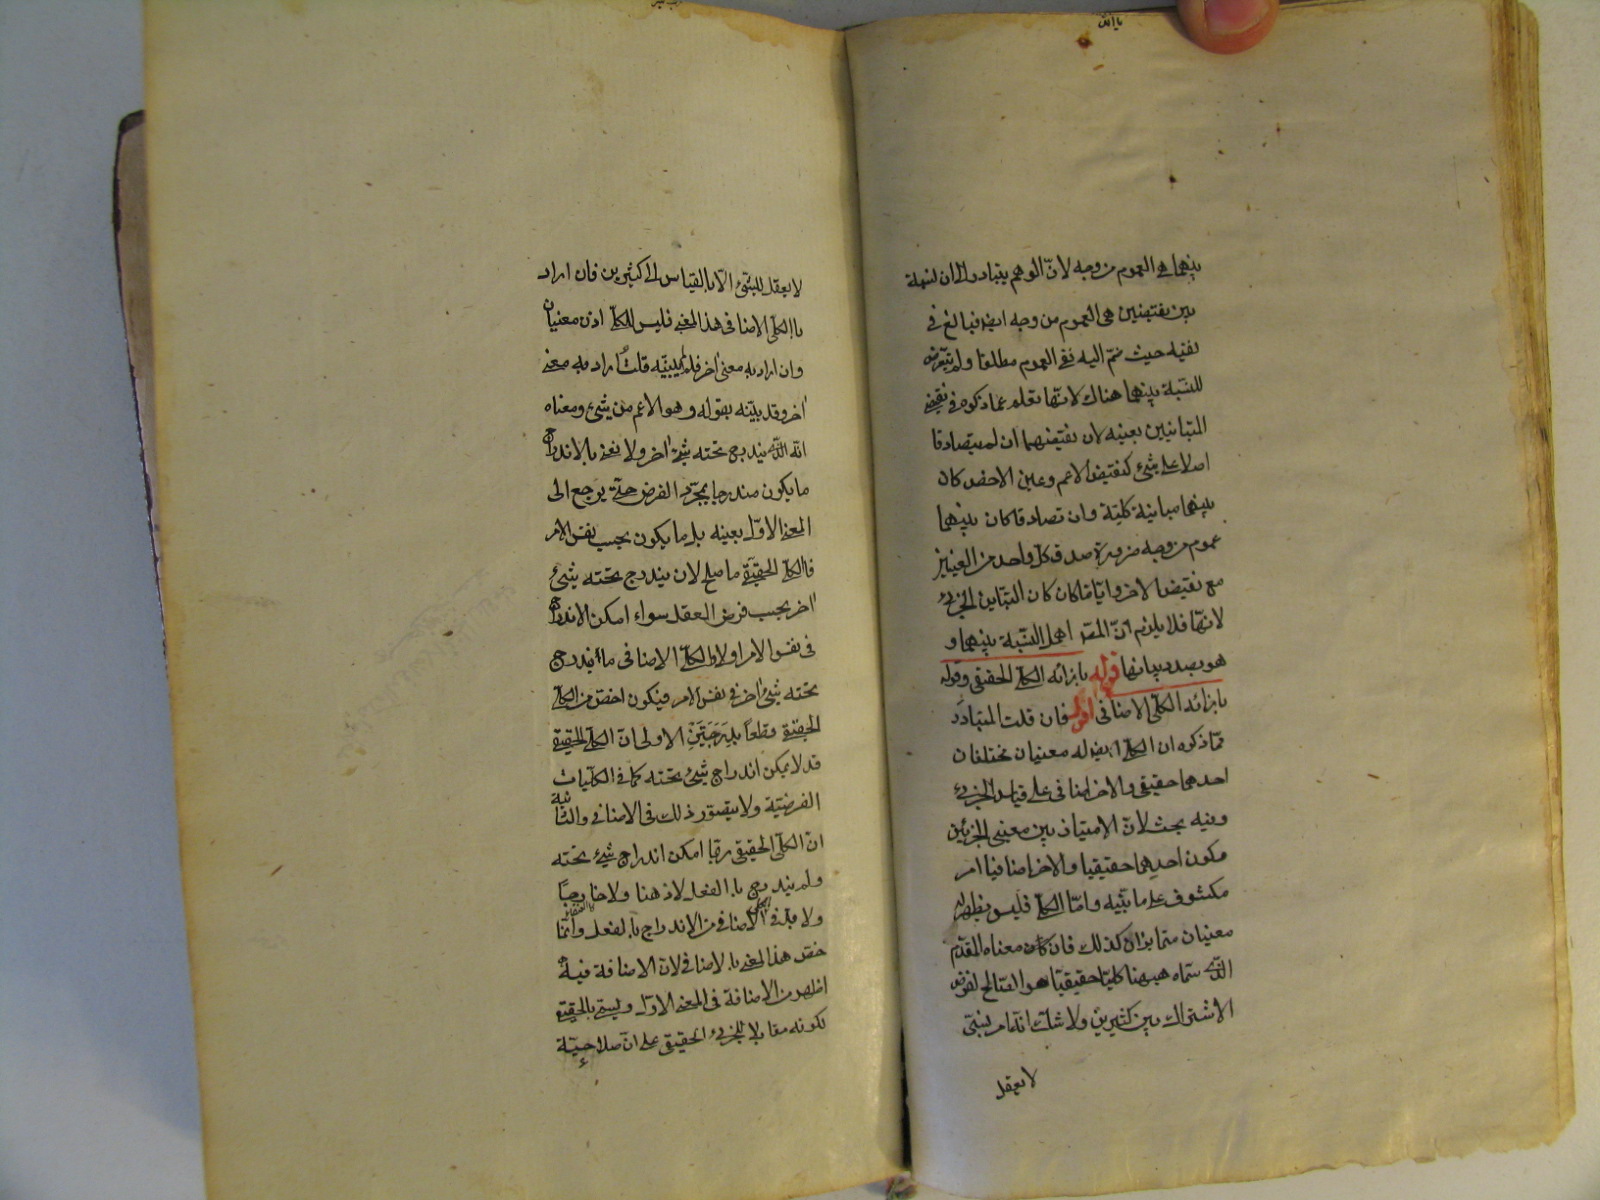 بينهما هي العموم من وجه لان الوهم يتبادر الى ان النسبة
بين نقيضين هي العموم من وجه ايضا فبالغ في
نفيه حيث ضم اليه نفي العموم مطلقا ولم يتعرض
للنسبة بينهما هناك لانها تعلم عما ذكره في نقيضي
المتباينين بعينه لان نقيضهما ان لم يتصادقا
اصلا على شئ كنقيض الاعم وعين الاخص كان
بينهما مباينة كلية وان تصادقا كان بينهما
عموم من وجه ضرورة صدق كل واحد من العينين
مع نقيض الاخر وايا ما كان كان التباين الجزئي
لانها فلا يلزم ان المص اهمل النسبة بينهما و
هو بصدد بيانها قوله بازائه الكلي الحقيقي وقوله
بازائه الكلي الاضافي اقول فان قلت المتبادر
مما ذكره ان الكلي ايضا له معنيان مختلفان
احدهما حقيقي والاخر اضافي على قياس الجزئي
وفيه بحث لان الامتياز بين معنيي الجزئين
مكون احدهما حقيقيا والاخر اضافيا امر
مكشوف على ما بينه واما الكلي فليس يظهر له
معنيان متمايزان كذلك فان كان معناه المقدم
الذي سماه ههنا كليا حقيقيا هو الصالح لفرض
الاشتراك بين كثيرين ولا شك انه امر نسبي
لا يعقل
لا يعقل للشئ الا بالقياس الى كثيرين فان اراد
بالكلي الاضافي هذا المعنى فليس للكلي اذن معنيان
وان اراد به معنى اخر فلم يبينه قلت اراد به معنى
اخر وقد بينه بقوله وهو الاعم من شئ ومعناه
انه الذي يندرج تحته شئ اخر ولا نعني بالاندراج
ما يكون مندرجا بمجرد الفرض حتى يرجع الى
المعنى الاول بعينه بل ما يكون بحسب نفس الامر
فالكلي الحقيقي ما صلح لان يندرج تحته شئ
اخر بحسب فرض العقل سواء امكن الاندراج
في نفس الامر اولا والكلي الاضافي ما اندرج
تحته شئ اخر في نفس الامر فيكون اخص من الكلي
الحقيقي قطعا بدرجتين الاولى ان الكلي الحقيقي
قد لا يمكن اندراج شئ تحته كما في الكليات
الفرضية ولا يتصور ذلك في الاضافي والثانية
ان الكلي الحقيقي ربما امكن اندراج شئ تحته
ولم يندرج بالفعل لا ذهنا ولا خارجا
ولا بد في الكلي الاضافي من الاندراج بالفعل وانما
خص هذا المعنى بالاضافي لان الاضافة فيه
اظهر من الاضافة في المعنى الاول ويسمى بالحقيقي
لكونه مقابلا للجزئي الحقيقي على ان صلاحيته